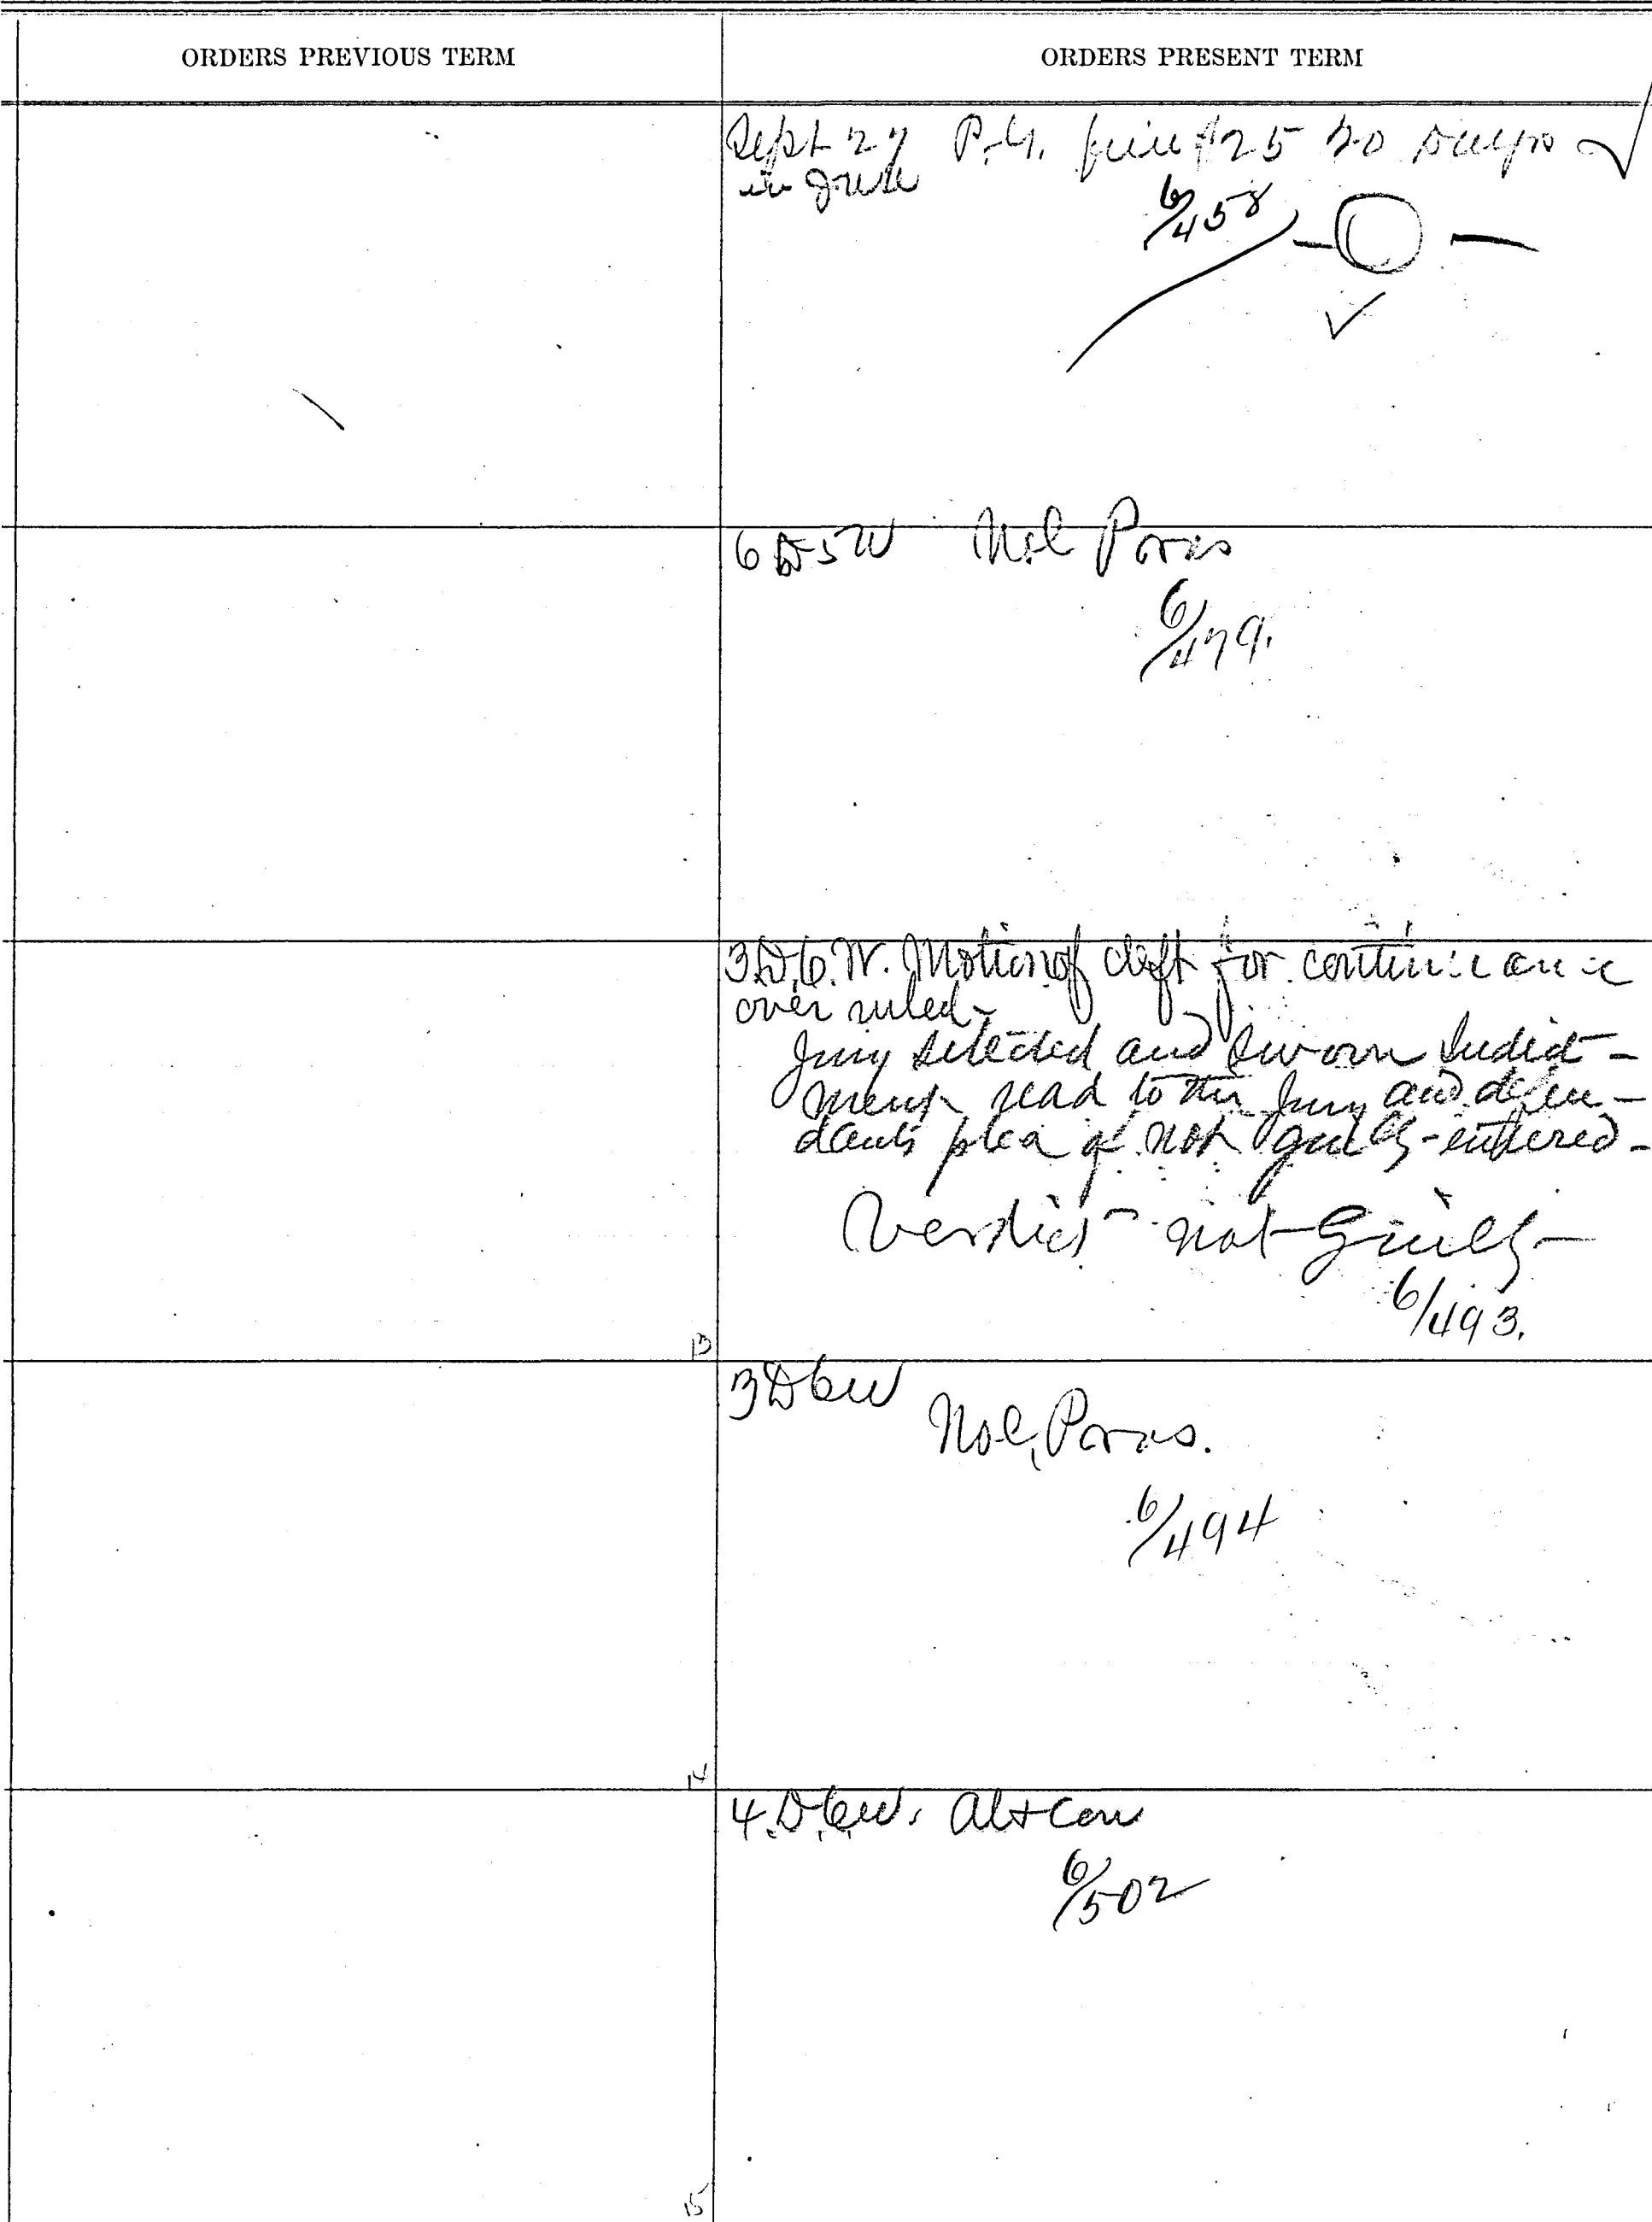 ORDERS PREVIOUS TERM
ORDERS PRESENT TERM
Sept 27 P.G. fine $25 30 days
in jail
6/458
6 D 5 W Nol Pros
6/479.
3.D.6.W. Motion of deft for continuance
over ruled-
Jury selected and sworn Indict-
ment read to the Jury and defen-
dants plea of not guilty-entered-
Verdict not Guilty-
6/493.
13
3 D 6 W
Nol, Pros.
6/494
14
4.D.6.W. Alt Con
6/502
15